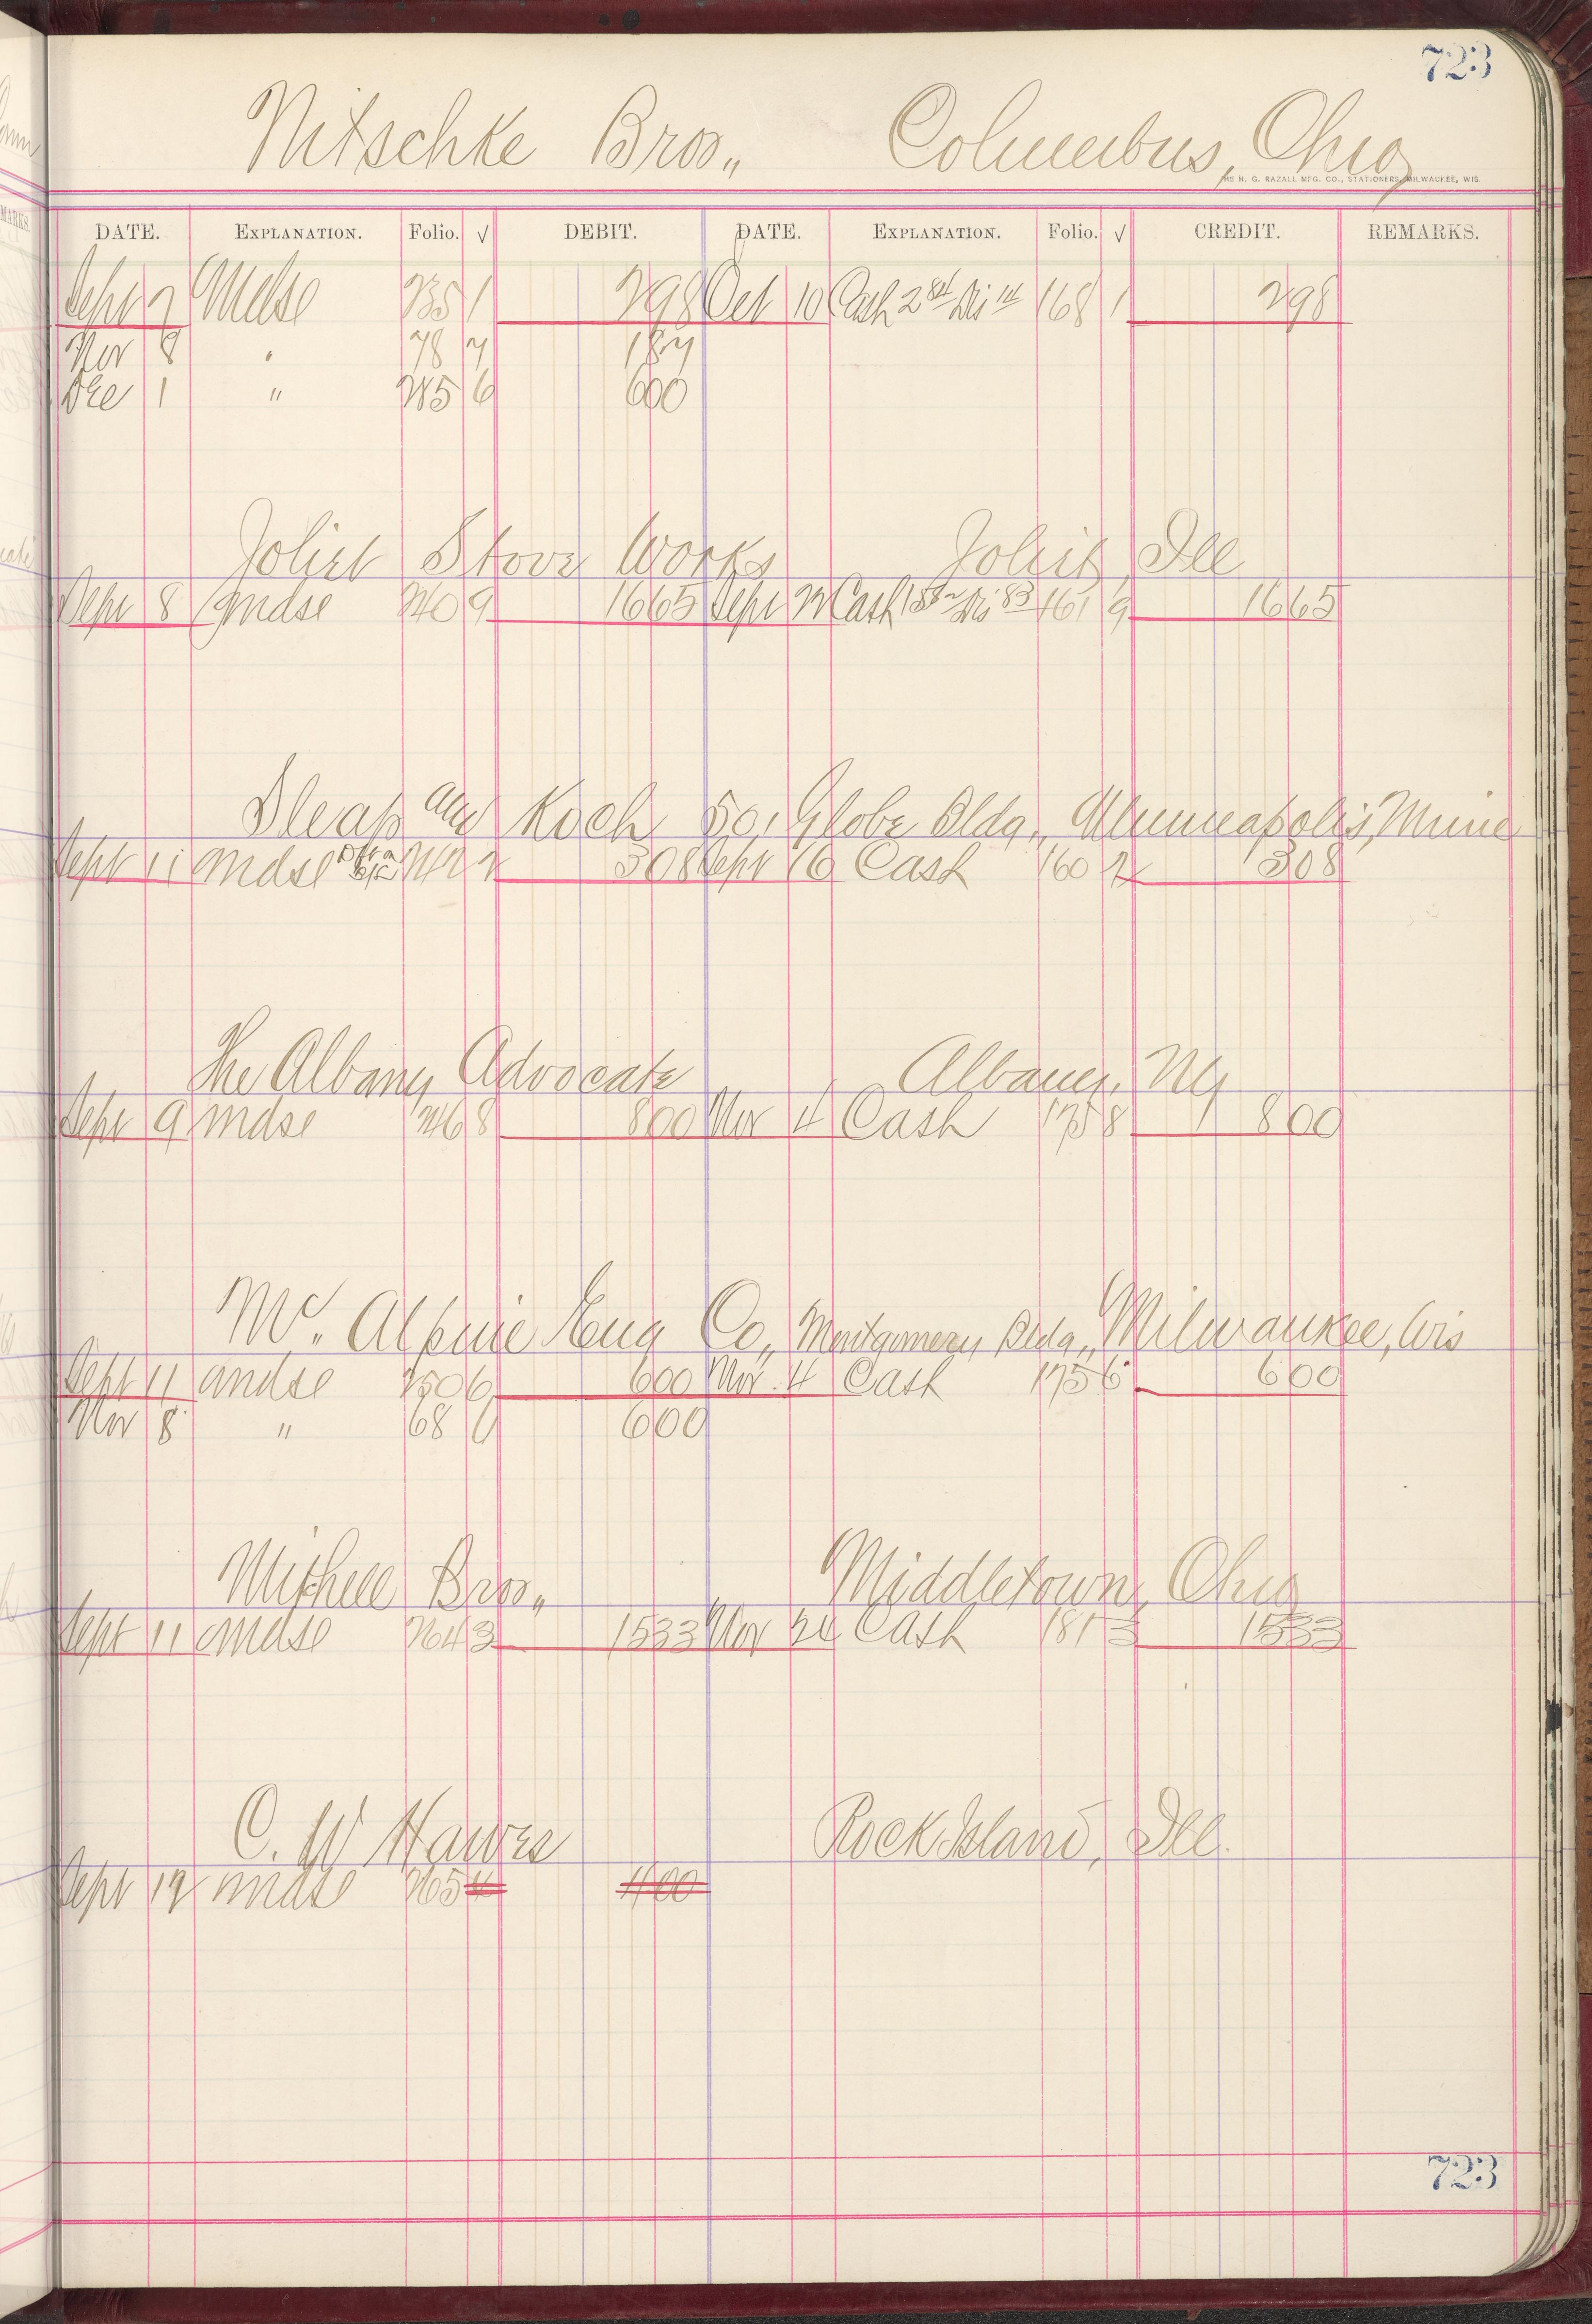 723
Nitschke Bros,, Columbus, Ohio
THE H. G. RAZALL MFG. CO., STATIONERS, MILWAUKEE, WIS.
DATE. EXPLANATION. Folio. √ DEBIT. DATE. EXPLANATION. Folio. √ CREDIT. REMARKS.
Sept 7 Mdse 235 1 298 Oct 10 Cash 2 84 Dis 14 168 1 298
Nov 8 " 78 7 187
Dec 1 " 285 6 600
Joliet Stove Works Joliet, Ill
Sept 8 mdse 240 9 1665 Sept 22 Cash 15 82 Dis 83 161 9 1665
Sleap and Koch 501 Globe Bldg., Minneapolis, Minn
Sept 11 mdse 242 2 308 Sept 16 Cash 160 2 308
The Albany Advocate Albany, Ny
Sept 9 mdse 246 8 800 Nov 4 Cash 175 8 800
Mc,, Alpine Eng Co,, Montgomery Bldg,, Milwaukee, Wis
Sept 11 mdse 250 6 600 Nov. 4 Cash 175 6 600
Nov 8 " 68 6 600
Mitchell Bros,, Middletown, Ohio
Sept 11 mdse 264 3 1533 Nov 24 Cash 181 3 1533
C. W Hawes Rock Island, Ill.
Sept 12 mdse 265 4 400
723